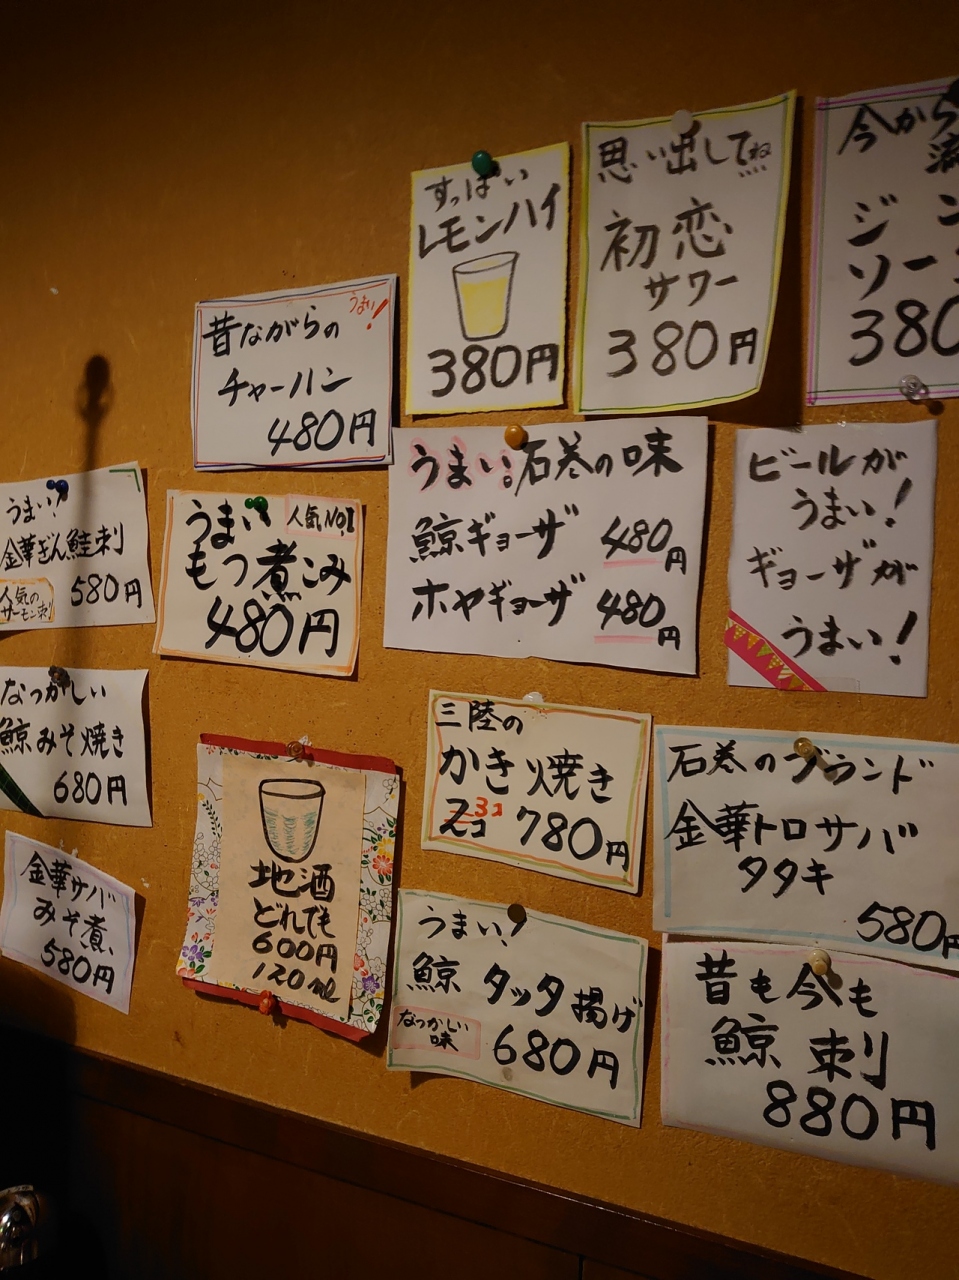 すっぱい
レモンハイ
380円
思い出してね
初恋
サワー
380円
今から
流
ジン
ソー
380
昔ながらの
うまい!
チャーハン
480円
うまい!石巻の味
鯨ギョーザ 480円
ホヤギョーザ 480円
ビールが
うまい!
ギョーザが
うまい!
うまい!
金華ぎん鮭刺
人気の
サーモン刺
580円
うまい
人気No1
もつ煮こみ
480円
なつかしい
鯨みそ焼き
680円
三陸の
かき焼き
2コ 3コ 780円
石巻のブランド
金華トロサバ
タタキ
580円
金華サバ
みそ煮
580円
地酒
どれでも
600円
120ml
うまい!
鯨 タッタ揚げ
なつかしい
味
680円
昔も今も
鯨刺
880円